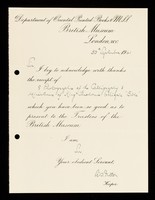 Department of Oriental Printed Books & MSS.
British Museum
London, WC
Sir
I beg to acknowledge with thanks
the receipt of
8 Photographs of the
which you have been so good as to
present to the Trustees of the
British Museum.
I am
Sir
Your obedient Servant
Keeper